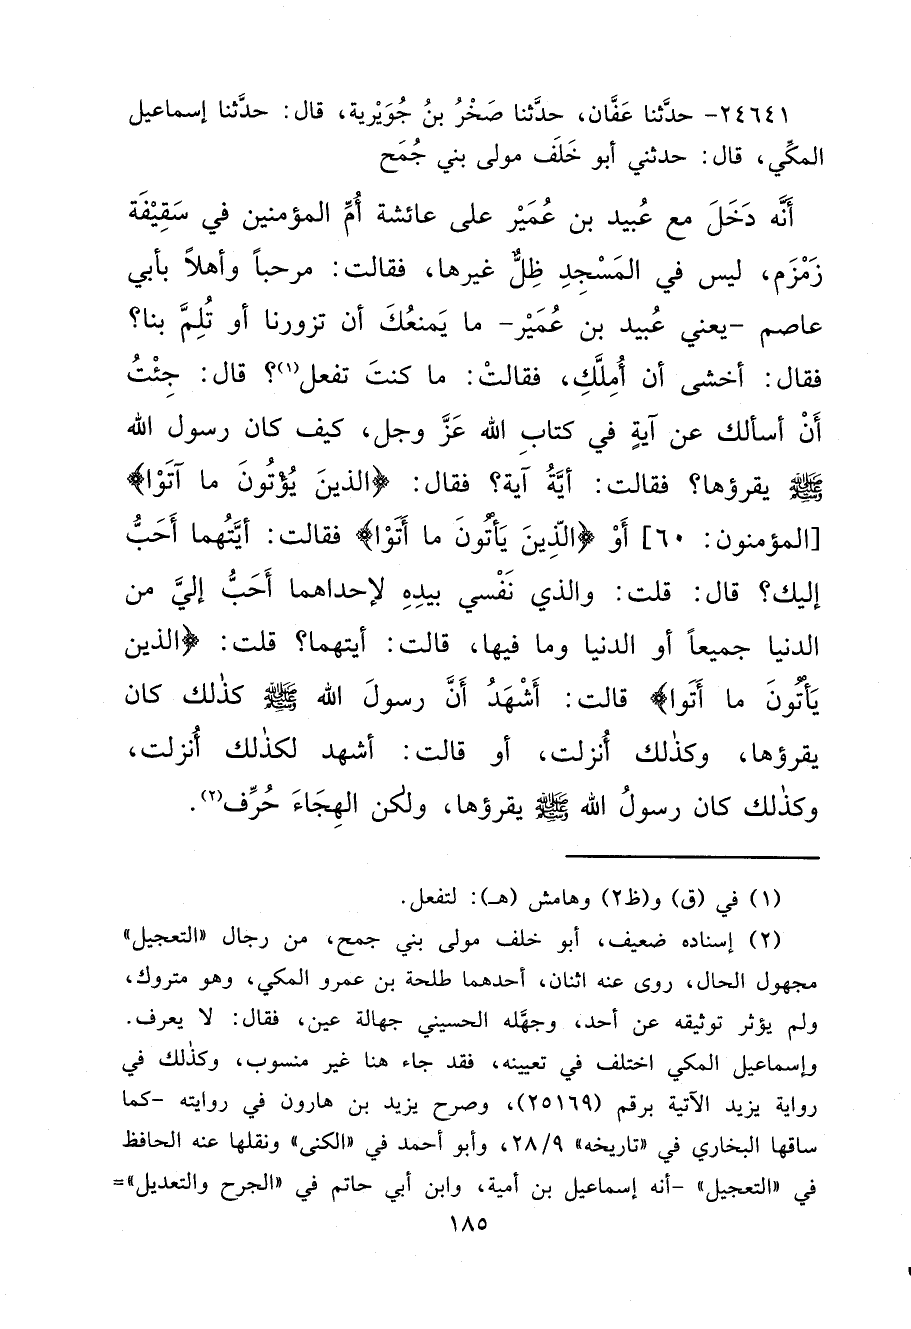 ٢٤٦٤١- حدَّثنا عَفَّان، حدَّثنا صَخْرُ بنُ جُوَيْرية، قال: حدَّثنا إسماعيل
المكِّي، قال: حدثني أبو خَلَف مولى بني جُمَح
أنَّه دَخَلَ مع عُبيد بن عُمَيْر على عائشة أُمِّ المؤمنين في سَقِيْفَة
زَمْزَم، ليس في المَسْجدِ ظِلٌّ غيرها، فقالت: مرحباً وأهلاً بأبي
عاصم -يعني عُبيد بن عُمَيْر- ما يَمنعُكَ أن تزورنا أو تُلِمَّ بنا؟
فقال: أخشى أن أُمِلَّكِ، فقالتْ: ما كنتَ تفعل(١)؟ قال: جِئْتُ
أَنْ أسألك عن آيةٍ في كتابِ الله عَزَّ وجل، كيف كان رسول الله
ﷺ يقرؤها؟ فقالت: أيَّةُ آية؟ فقال: ﴿الذينَ يُؤْتُونَ ما آتَوْا﴾
[المؤمنون: ٦٠] أَوْ ﴿الّذِينَ يَأْتُونَ ما أَتَوْا﴾ فقالت: أيَّتُهما أَحَبُّ
إليك؟ قال: قلت: والذي نَفْسي بيدِهِ لإحداهما أَحَبُّ إليَّ من
الدنيا جميعاً أو الدنيا وما فيها، قالت: أيتهما؟ قلت: ﴿الذين
يَأْتُونَ ما أَتَوا﴾ قالت: أَشْهَدُ أَنَّ رسولَ الله ﷺ كذٰلك كان
يقرؤها، وكذٰلك أُنزلت، أو قالت: أشهد لكذٰلك أُنزلت،
وكذٰلك كان رسولُ الله ﷺ يقرؤها، ولٰكن الهِجَاءَ حُرِّف(٢).
(١) في (ق) و(ظ٢) وهامش (هـ): لتفعل.
(٢) إسناده ضعيف، أبو خلف مولى بني جمح، من رجال «التعجيل»
مجهول الحال، روى عنه اثنان، أحدهما طلحة بن عمرو المكي، وهو متروك،
ولم يؤثر توثيقه عن أحد، وجهَّله الحسيني جهالة عين، فقال: لا يعرف.
وإسماعيل المكي اختلف في تعيينه، فقد جاء هنا غير منسوب، وكذٰلك في
رواية يزيد الآتية برقم (٢٥١٦٩)، وصرح يزيد بن هارون في روايته -كما
ساقها البخاري في «تاريخه» ٢٨/٩، وأبو أحمد في «الكنى» ونقلها عنه الحافظ
في «التعجيل» -أنه إسماعيل بن أمية، وابن أبي حاتم في «الجرح والتعديل»=
١٨٥